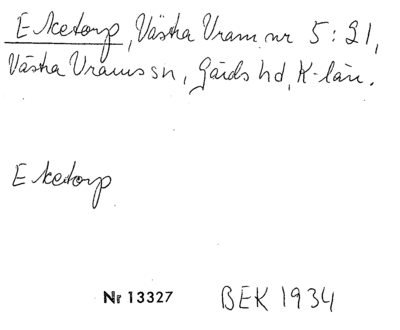 Eketorp, Västra Vram nr 5:21,
Västra Vrams sn, Gärds hd, K-län.
Eketorp
Nr 13327 BEK 1934